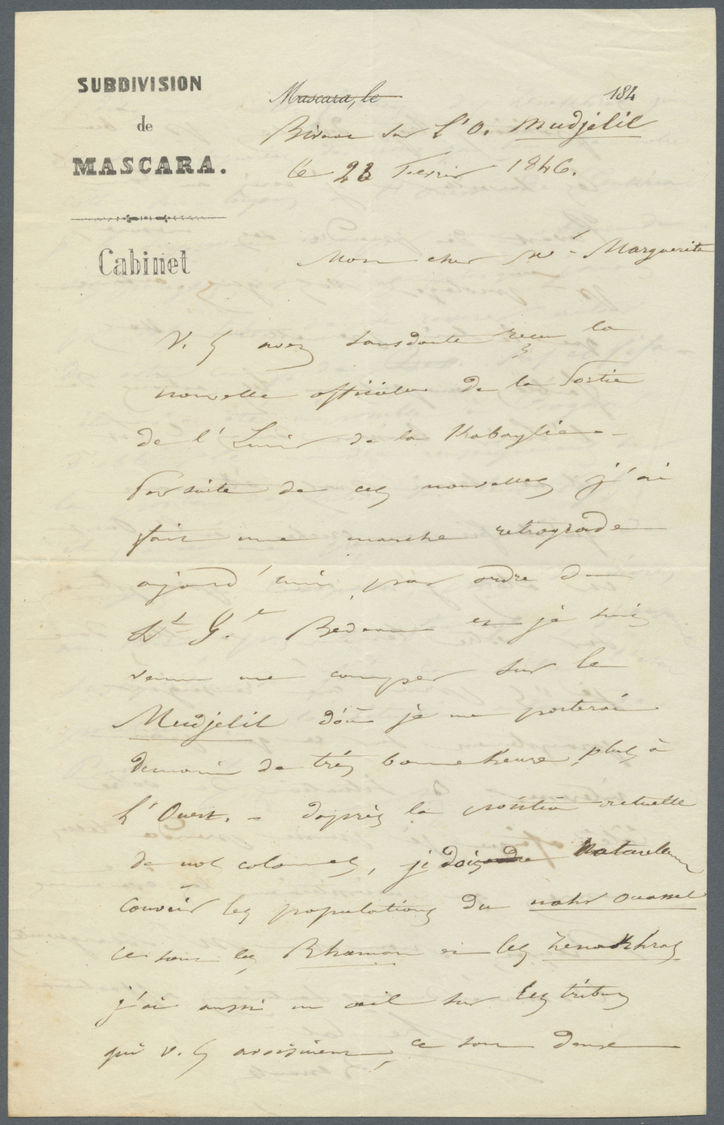 SUBDIVISION
de
MASCARA.
Cabinet
Mascara, le 184
Bivouac sur L'O. Mudjelil
le 23 Fevrier 1846.
Mon cher Mr Marguerite
V. avez sans doute recu la
nouvelle officielle de la Sortie
de l'Emir de la Kabaylie
Par suite de ces nouvelles j'ai
fait une marche retrograde
aujourd'hui par ordre du
Lt Gal Bedeau et je suis
venu me camper sur le
Mudjelil d'où je me porterai
demain de très bonne heure plus à
L'Ouest. - d'après la position actuelle
de nos colonnes, je dois
couvrir les populations du nahr ouassel
ce sont les Rhaman et les
j'ai aussi un oeil sur les tribus
qui v. avoisinent, ce sont